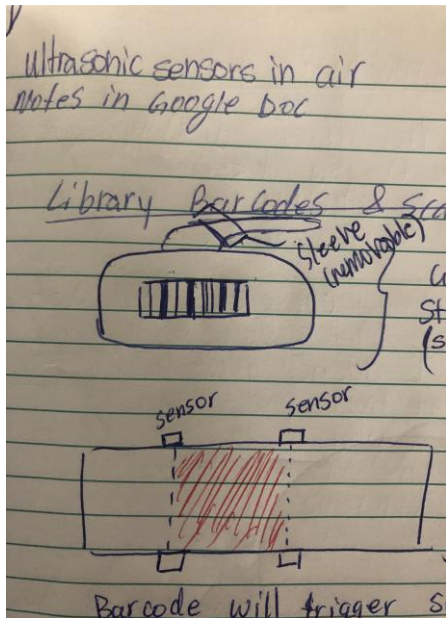 ultrasonic sensors in air
Notes in Google Doc
Library Barcodes & Sca
Sleeve
(removable)
St
(s
sensor sensor
Barcode will trigger s